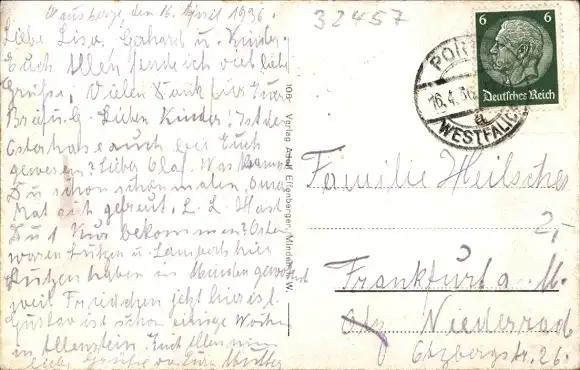 Hausberge, den 16. April 1936.
Liebe Lisa, Gerhard u. Kinder.
Euch Allen sende ich viel liebe
Grüße. Vielen Dank für Euer
Brief u. G. Lieben Kinder, Ist der
Osterhase auch bei Euch
gewesen? Lieber Olaf. Was kannst
Du schon schön malen, Oma
hat sich gefreut. L. L. Hast
Du 1 bekommen? Ostern
waren Lutzen u. hier
Lutzen haben in Minden gewohnt
weil Friedchen jetzt hier ist.
Gustav ist schon einige Wochen
in Allenstein. Euch Allen nun
liebe Grüße von Eure Mutter
108 Verlag Adolf Effenberger, Minden i. W.
32457
6 6
Deutsches Reich
PORTA
16.4.36
WESTFALICA
Familie Heilscher
2,-
Frankfurt a. M.
Niederrad
Otzbergstr. 26.